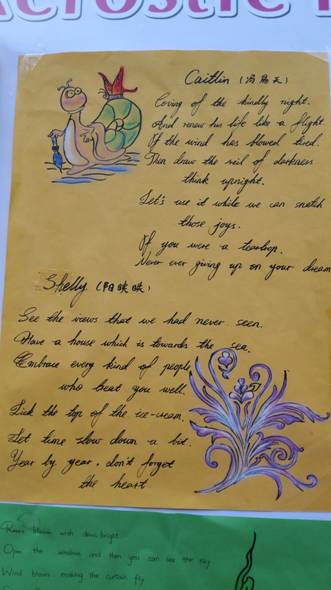 Acrostic
Caitlin
Loving of the kindly night.
And renew his life like a flight.
If the wind has blowed tired.
Then draw the veil of darkness
think upright.
Let's use it while we can snatch
those joys.
If you were a teardrop.
Never ever giving up on your dream
Shelly
See the views that we had never seen.
Have a house which is towards the sea.
Embrace every kind of people
who treat you well.
Lick the top of the ice-cream.
Let time slow down a bit.
Year by year, don't forget
the heart
bloom with dews bright
Open the window and then you can see the sky
Wind blows making the curtain fly